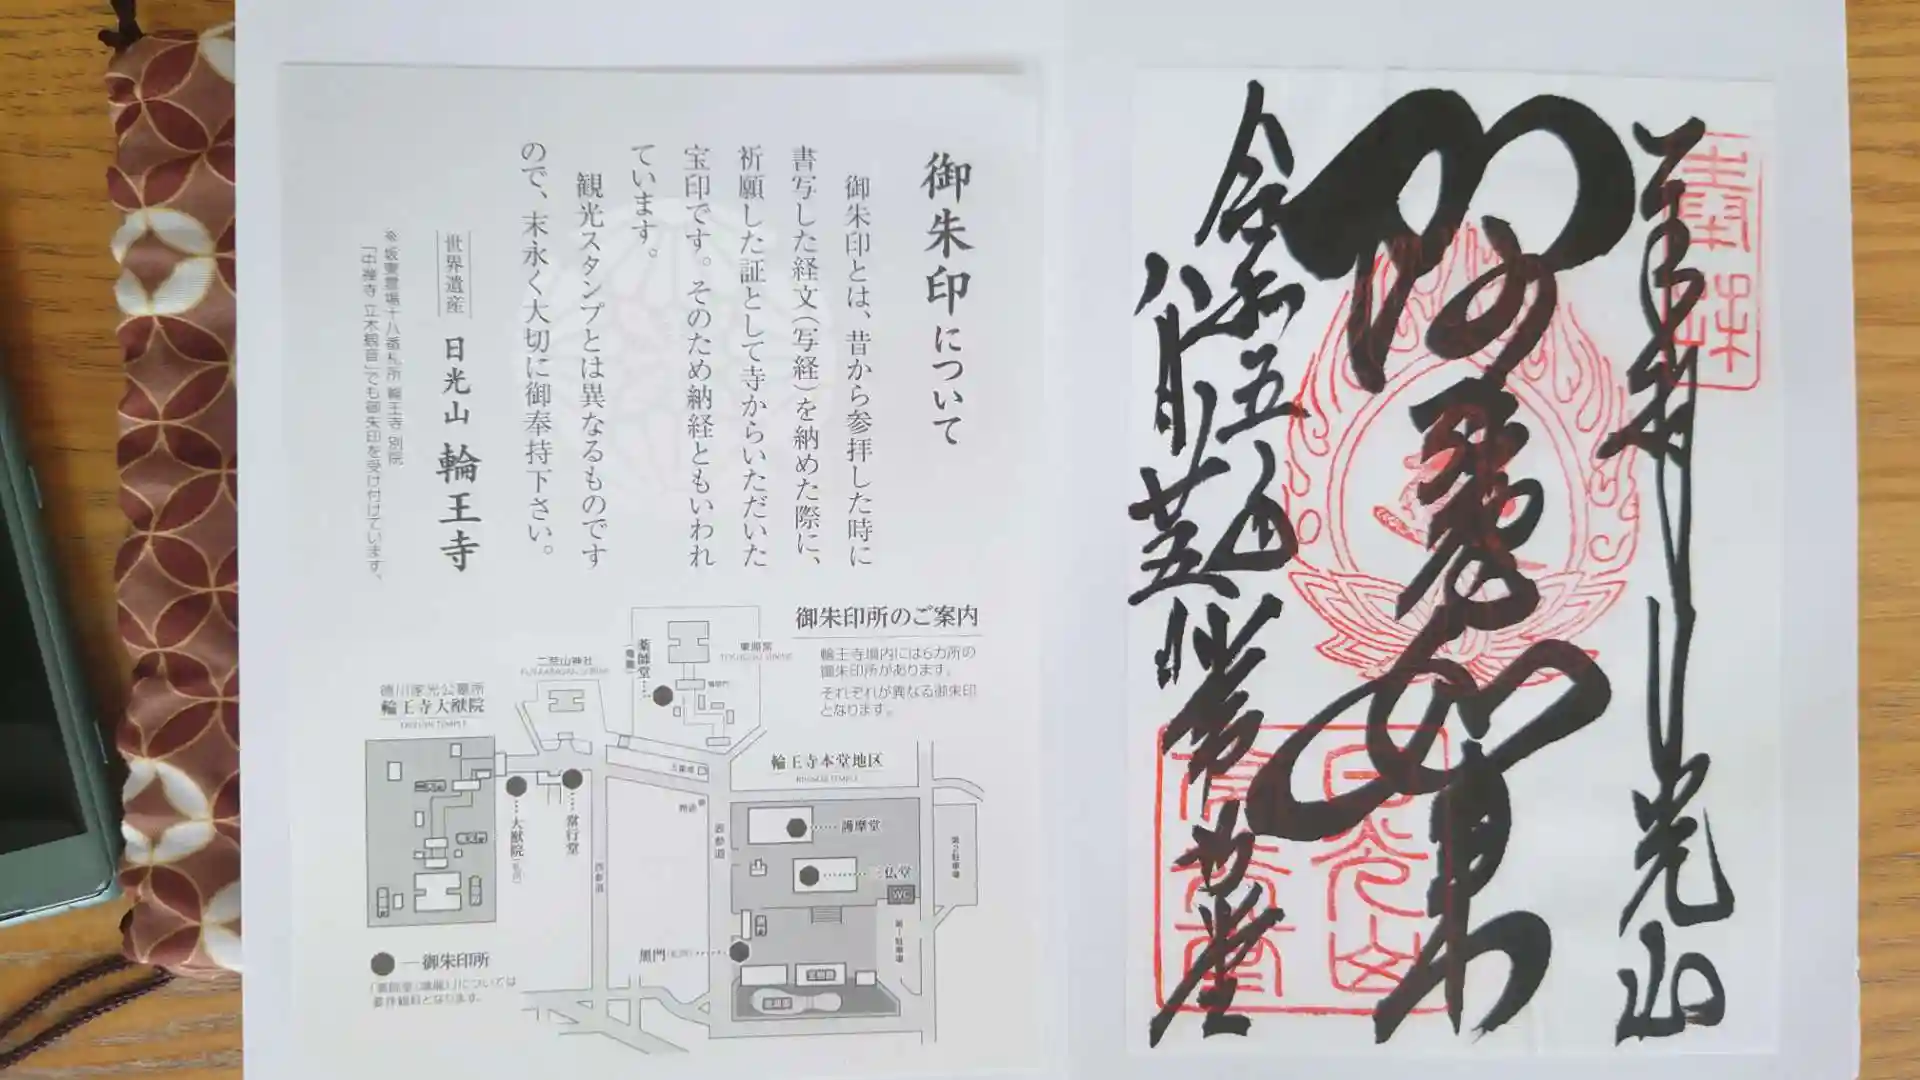 御朱印について
御朱印とは、昔から参拝した時に
書写した経文(写経)を納めた際に、
祈願した証として寺からいただいた
宝印です。そのため納経ともいわれ
ています。
観光スタンプとは異なるものです
ので、末永く大切に御奉持下さい。
世界遺産 日光山 輪王寺
※坂東霊場十八番札所 輪王寺 別院
「中禅寺 立木観音」でも御朱印を受け付けています。
御朱印所のご案内
輪王寺境内には6カ所の
御朱印所があります。
それぞれが異なる御朱印
となります。
東照宮
TOSHOGU SHRINE
薬師堂
二荒山神社
徳川家光公墓所
輪王寺大猷院
TAIYUIN TEMPLE
大猷院
常行堂
西参道
表参道
輪王寺本堂地区
RINNOJI TEMPLE
護摩堂
三仏堂
WC
黒門
第2駐車場
第一駐車場
●―御朱印所
奉拝
日光山
阿弥陀如来
令和五年
八月
常行堂
日光山
常行堂